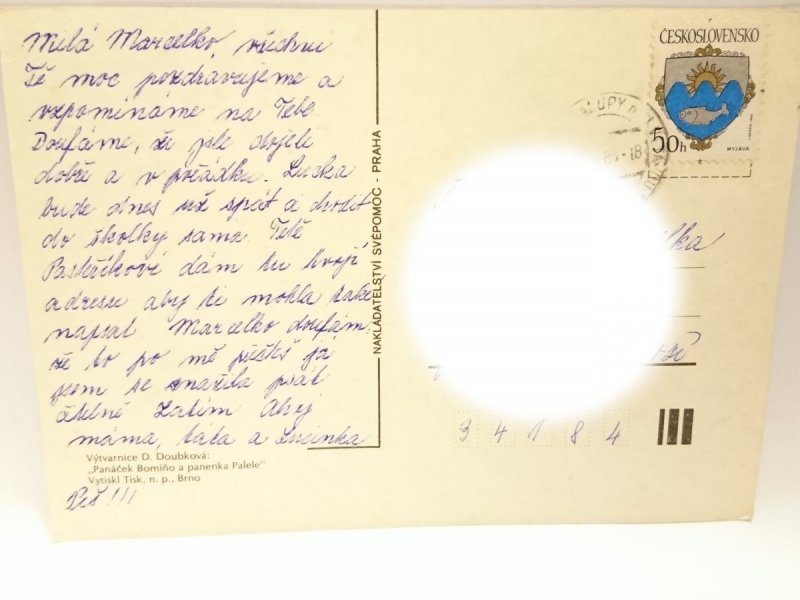 Milá Marcelko, všichni
Tě moc pozdravujeme a
vzpomínáme na Tebe
Doufáme, že jste dojeli
dobře a v pořádku. Lucka
bude dnes už spát a chodit
do školky sama Tetě
Pastěříkové dám tu tvojí
adresu aby ti mohla také
napsat. Marcelko doufám,
že to po mě přečteš já
jsem se snažila psát
čitelně Zatím Ahoj
máma, táta a Lucinka
Výtvarnice D. Doubková:
„Panáček Bomiňo a panenka Palele"
Vytiskl Tisk, n. p., Brno
Piš !!!
NAKLADATELSTVÍ SVÉPOMOC - PRAHA
ČESKOSLOVENSKO
50h
MYJAVA
34184